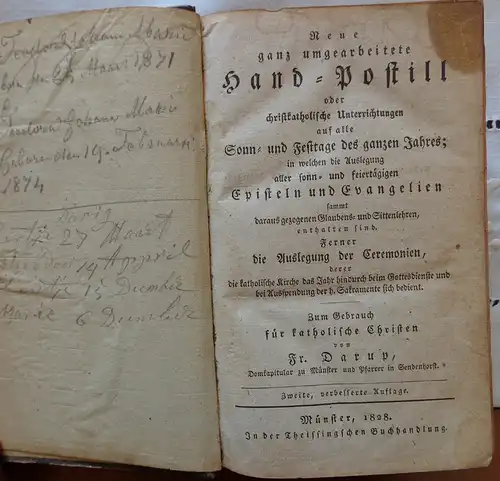 Johann
den 25 Maart 1871
Johann
Geboren den 19.
1874
27 Maart
19 April
15 Deember
6 Deember
Neue
ganz umgearbeitete
Hand-Postill
oder
christkatholische Unterrichtungen
auf alle
Sonn- und Festtage des ganzen Jahres;
in welchen die Auslegung
aller sonn- und feiertägigen
Episteln und Evangelien
sammt
daraus gezogenen Glaubens- und Sittenlehren,
enthalten sind.
Ferner
die Auslegung der Ceremonien,
derer
die katholische Kirche das Jahr hindurch beim Gottesdienste und
bei Ausspendung der h. Sakramente sich bedient.
Zum Gebrauch
für katholische Christen
von
Fr. Darup,
Domkapitular zu Münster und Pfarrer in Sendenhorst.
Zweite, verbesserte Auflage.
Münster, 1828.
In der Theissingschen Buchhandlung.